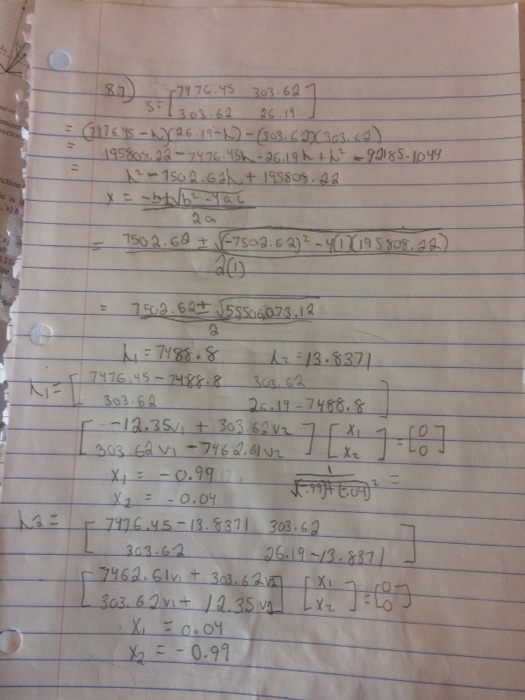 8.7)
S = [7476.45 303.62
303.62 26.19]
= (7476.45 - λ)(26.19 - λ) - (303.62)(303.62)
= 195808.22 - 7476.45λ - 26.19λ + λ² - 92185.1044
= λ² - 7502.62λ + 195808.22
x = -b ± √b² - 4ac
2a
= 7502.62 ± √(-7502.62)² - 4(1)(195808.22)
2(1)
= 7502.62 ± √55506073.12
2
λ₁ = 7488.8 λ₂ = 13.8371
λ₁ = [7476.45 - 7488.8 303.62
303.62 26.19 - 7488.8]
[-12.35v₁ + 303.62v₂
303.62v₁ - 7462.61v₂] [x₁ x₂] = [0 0]
x₁ = -0.99 1/√(-.99)²+(-.04)² =
x₂ = -0.04
λ2 = [7476.45 - 13.8371 303.62
303.62 26.19 - 13.8371]
[7462.61v₁ + 303.62v₂
303.62v₁ + 12.35v₂] [x₁ x₂] = [0 0]
x₁ = 0.04
x₂ = -0.99